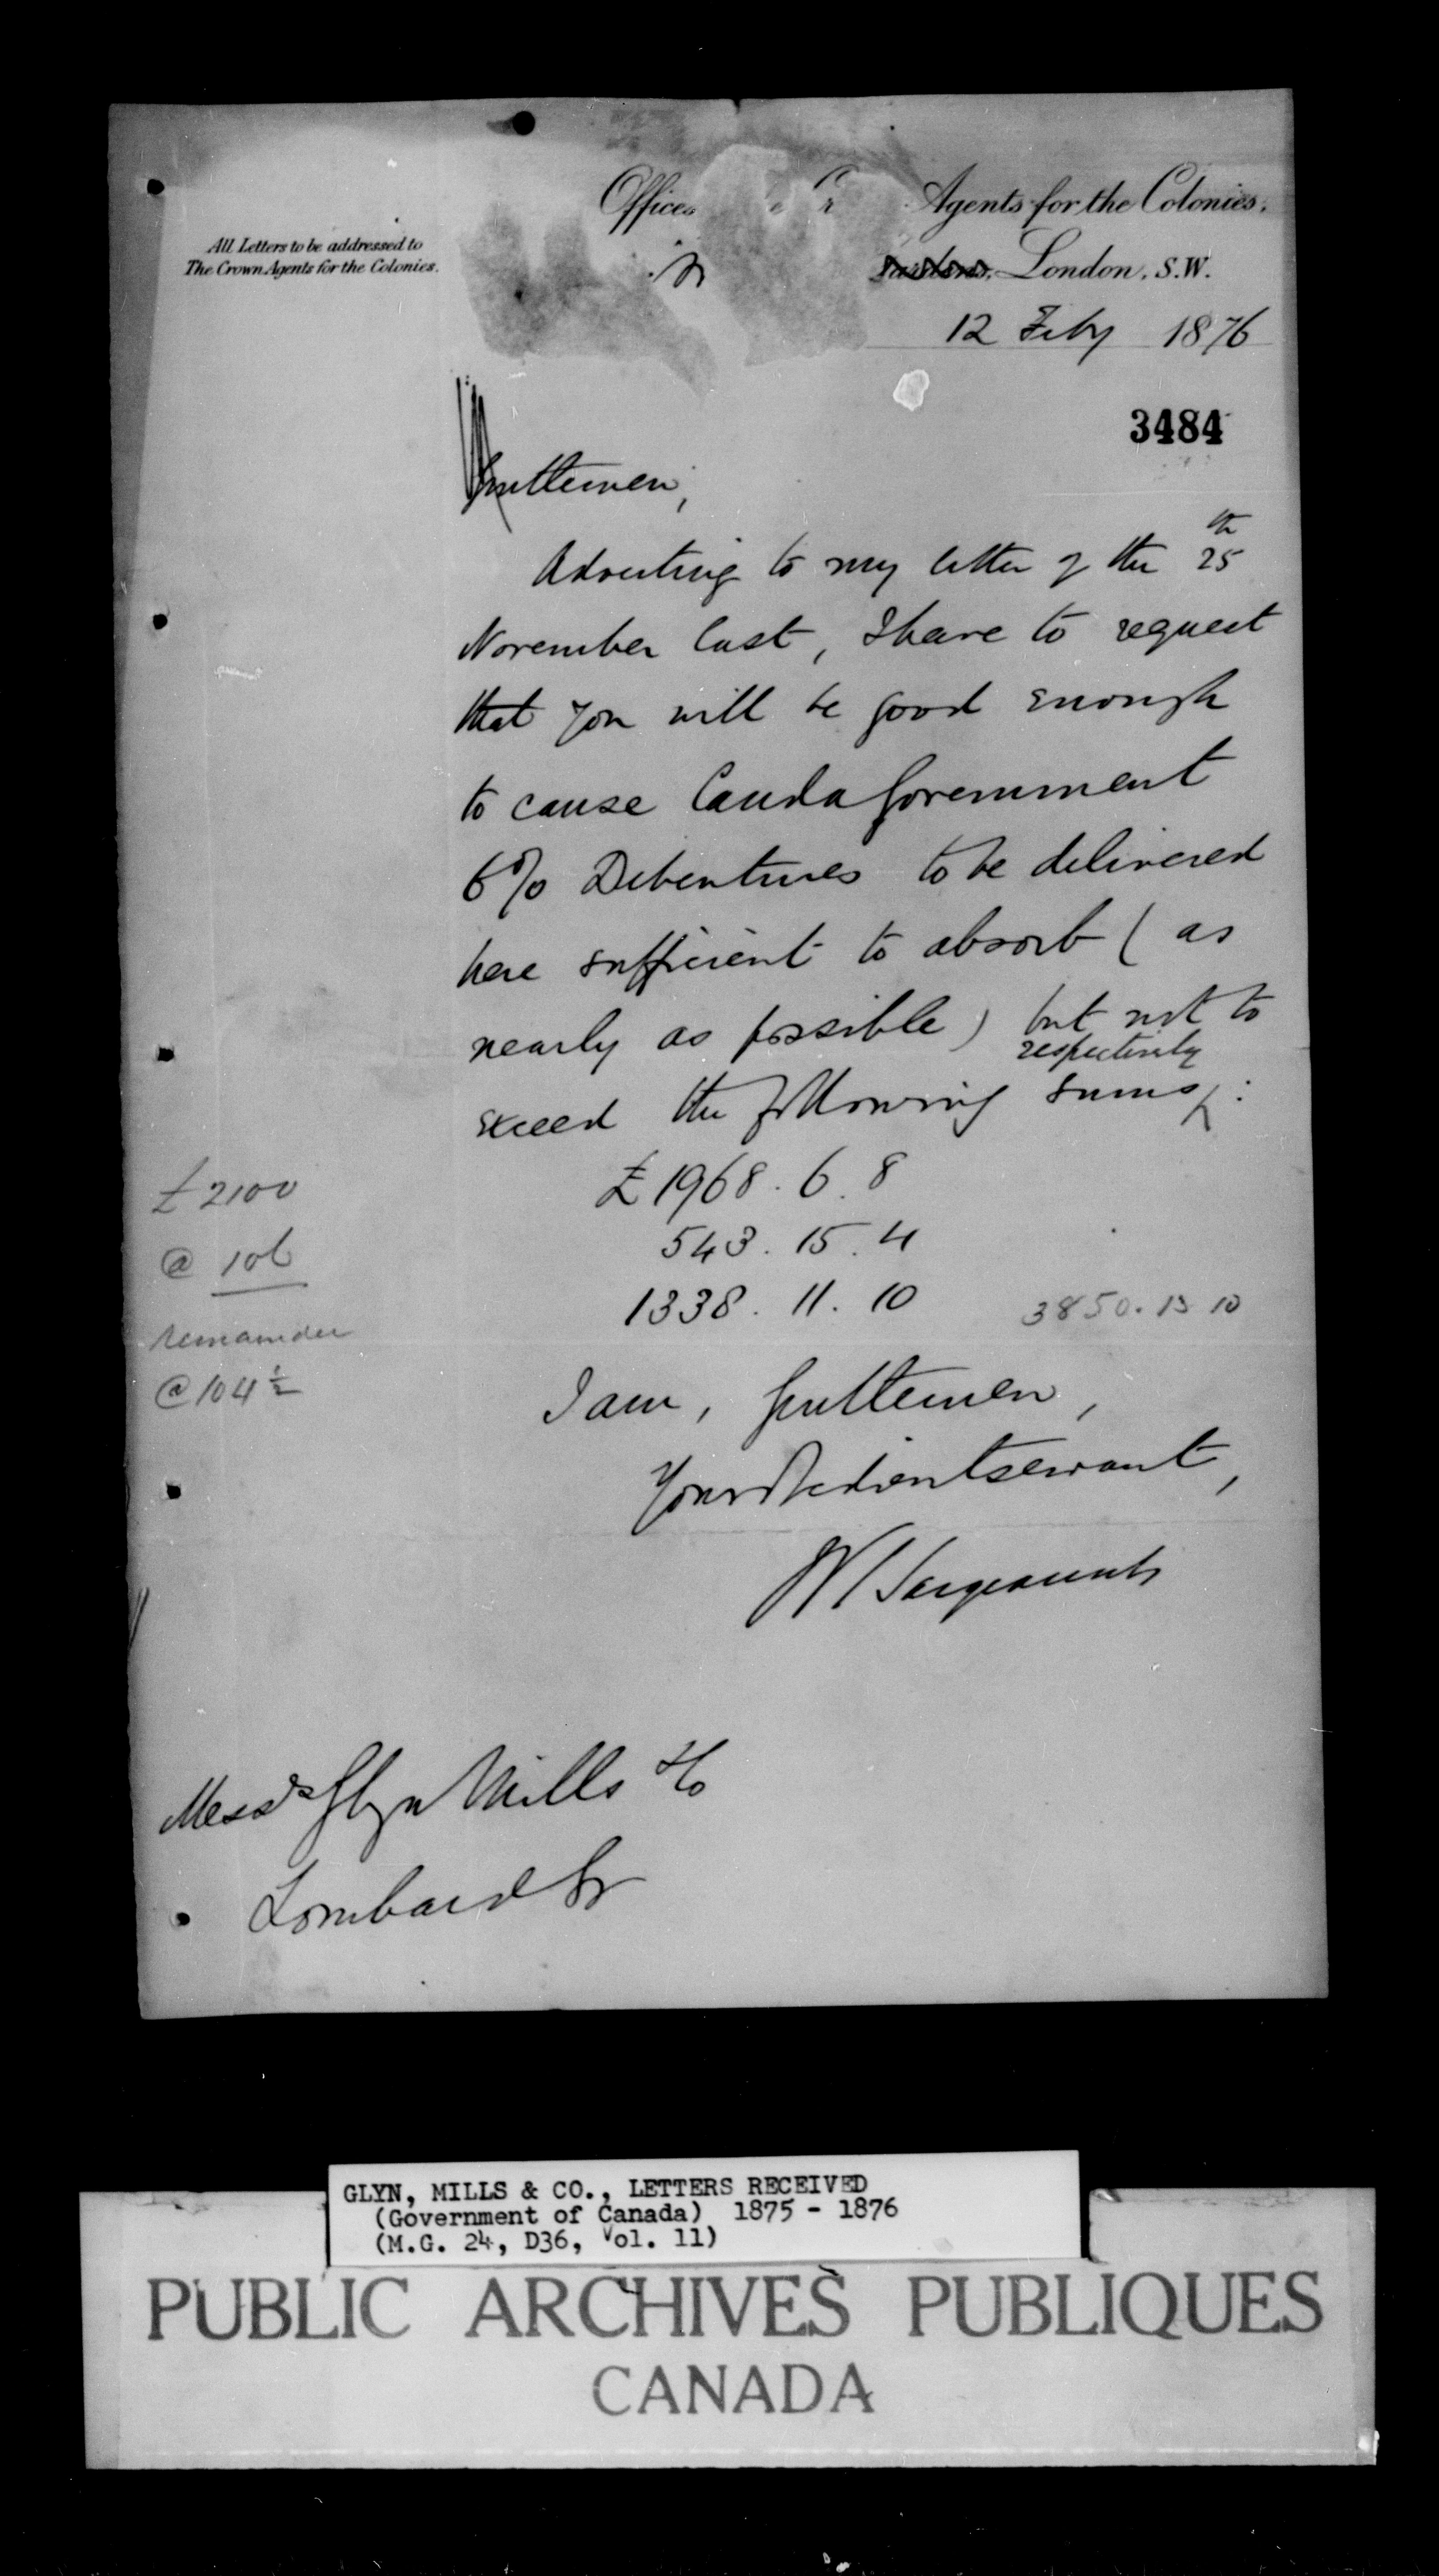 Offices Agents for the Colonies,
All Letters to be addressed to
The Crown Agents for the Colonies.
London, S.W.
12 Feby 1876
3484
Gentlemen,
Adverting to my letter of the 25th
November last, I have to request
that you will be good enough
to cause Canda Government
6% Debentures to be delivered
here sufficient to absorb (as
nearly as possible) but not to
exceed the following sums respectively:
£1968.6.8
543.15.4
1338.11.10
3850.13 10
£2100
@ 106
remainder
@ 104½
I am, Gentlemen,
Your obedient servant,
Messrs Glyn Mills & Co
Lombard St
GLYN, MILLS & CO., LETTERS RECEIVED
(Government of Canada) 1875 - 1876
(M.G. 24, D36, Vol. 11)
PUBLIC ARCHIVES PUBLIQUES
CANADA